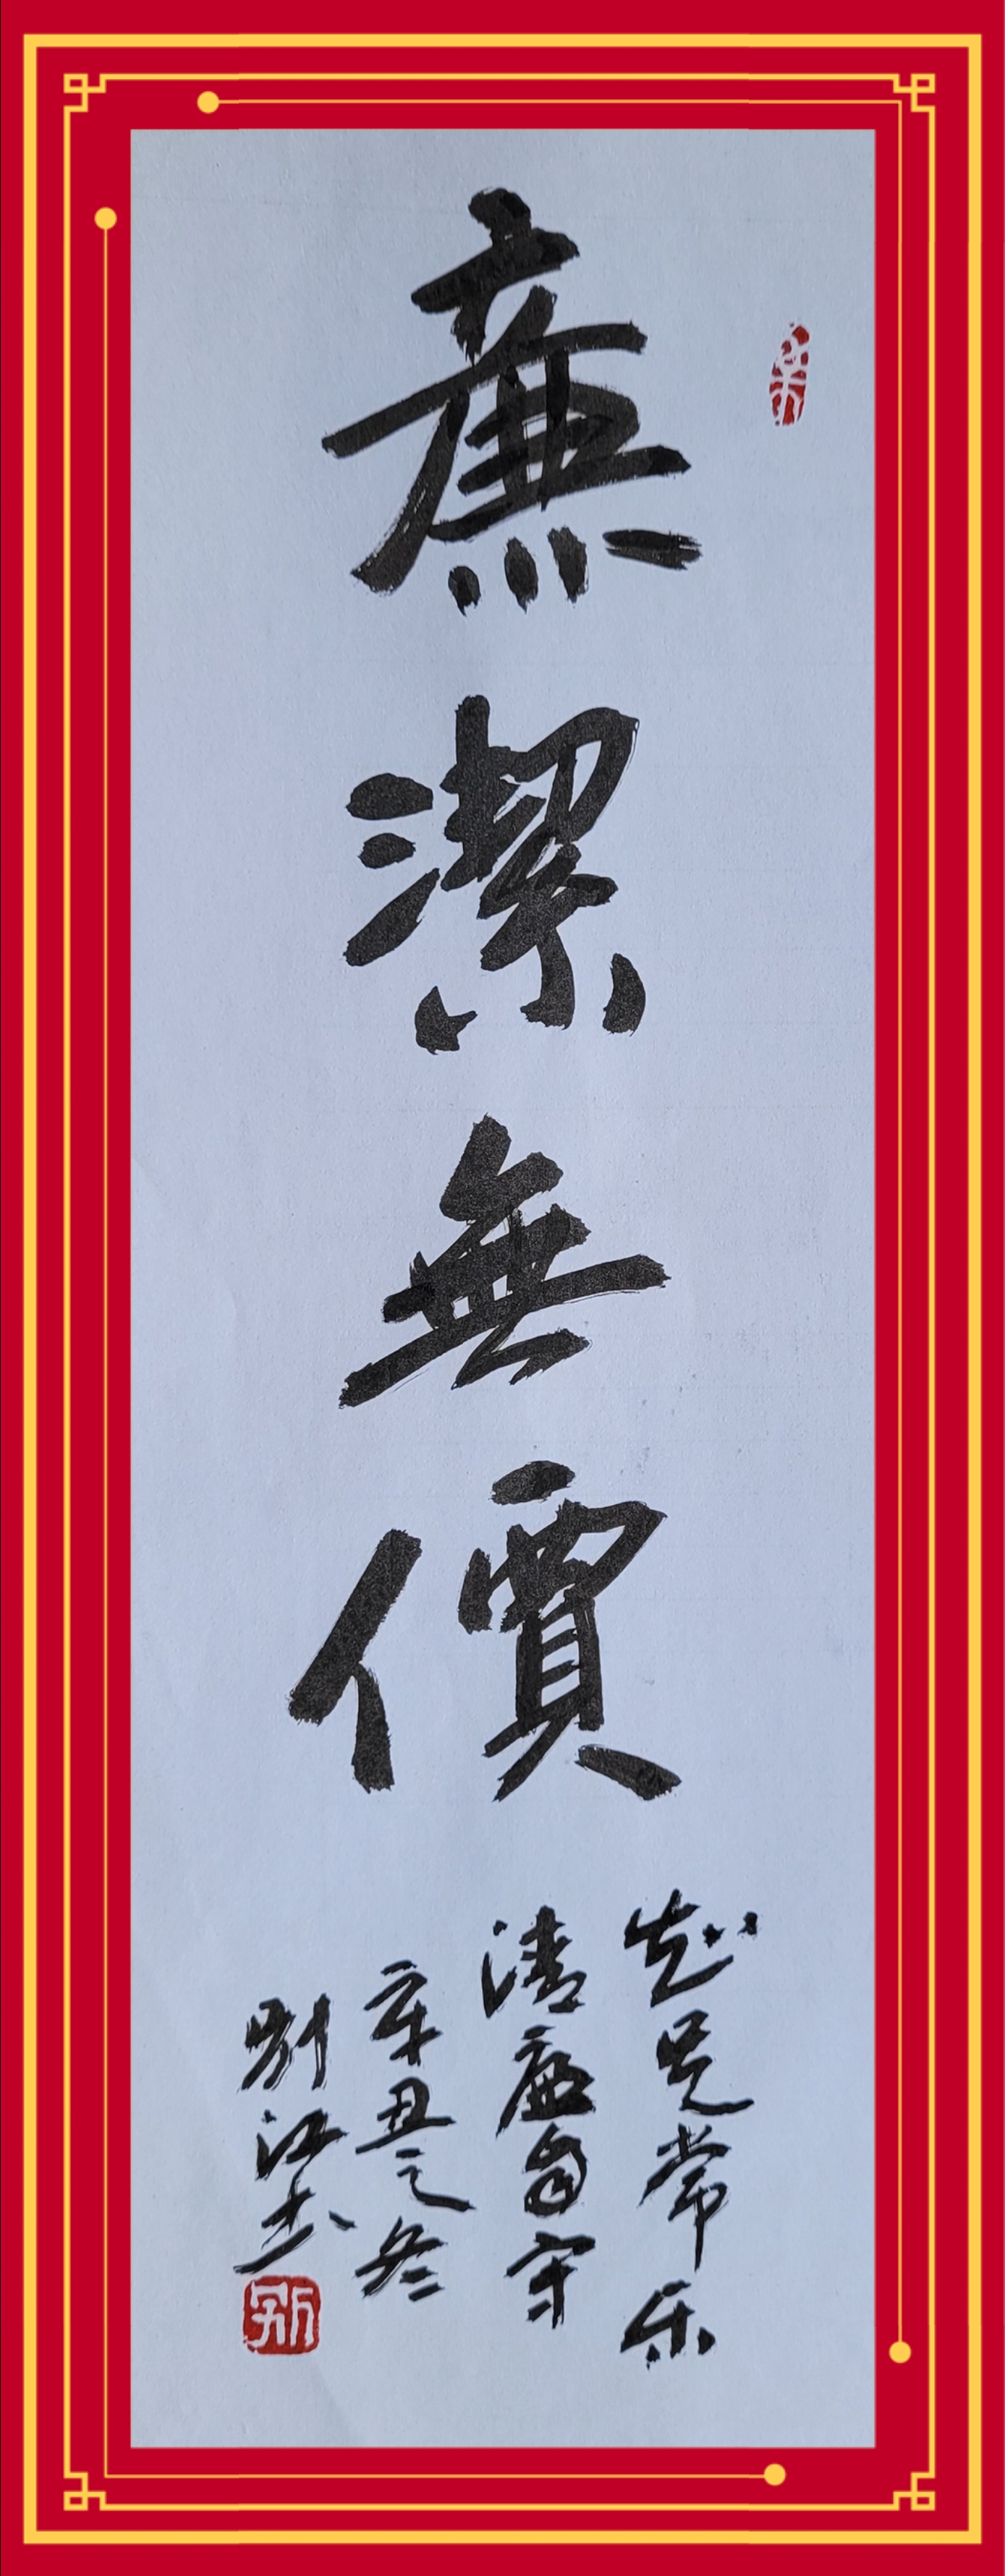 廉潔無價
知足常乐
清廉自守
辛丑之冬
别江书